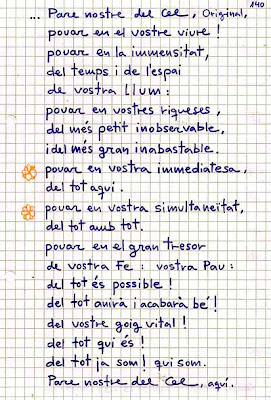 140
... Pare nostre del Cel, Original,
pouar en el vostre viure!
pouar en la immensitat,
del temps i de l'espai
de vostra Llum:
pouar en vostres riqueses,
del més petit inobservable,
i del més gran inabastable.
pouar en vostra immediatesa,
del tot aquí.
pouar en vostra simultaneïtat,
del tot amb tot.
pouar en el gran tresor
de vostra Fe: vostra Pau:
del tot és possible!
del tot anirà i acabarà bé!
del vostre goig vital!
del tot qui és!
del tot ja som! qui som.
Pare nostre del Cel, aquí.